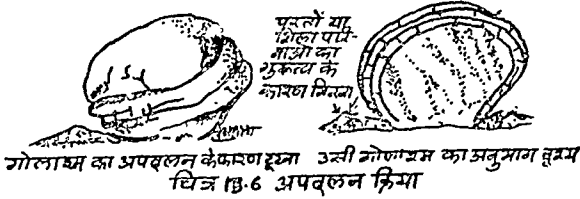 परतों या
शिला परि-
नाओं का
गुरूत्व के
कारण गिरना
गोलाश्म का अपदलन के कारण टूटना उसी गोलाश्म का अनुभाग दृश्य
चित्र 13.6 अपदलन क्रिया